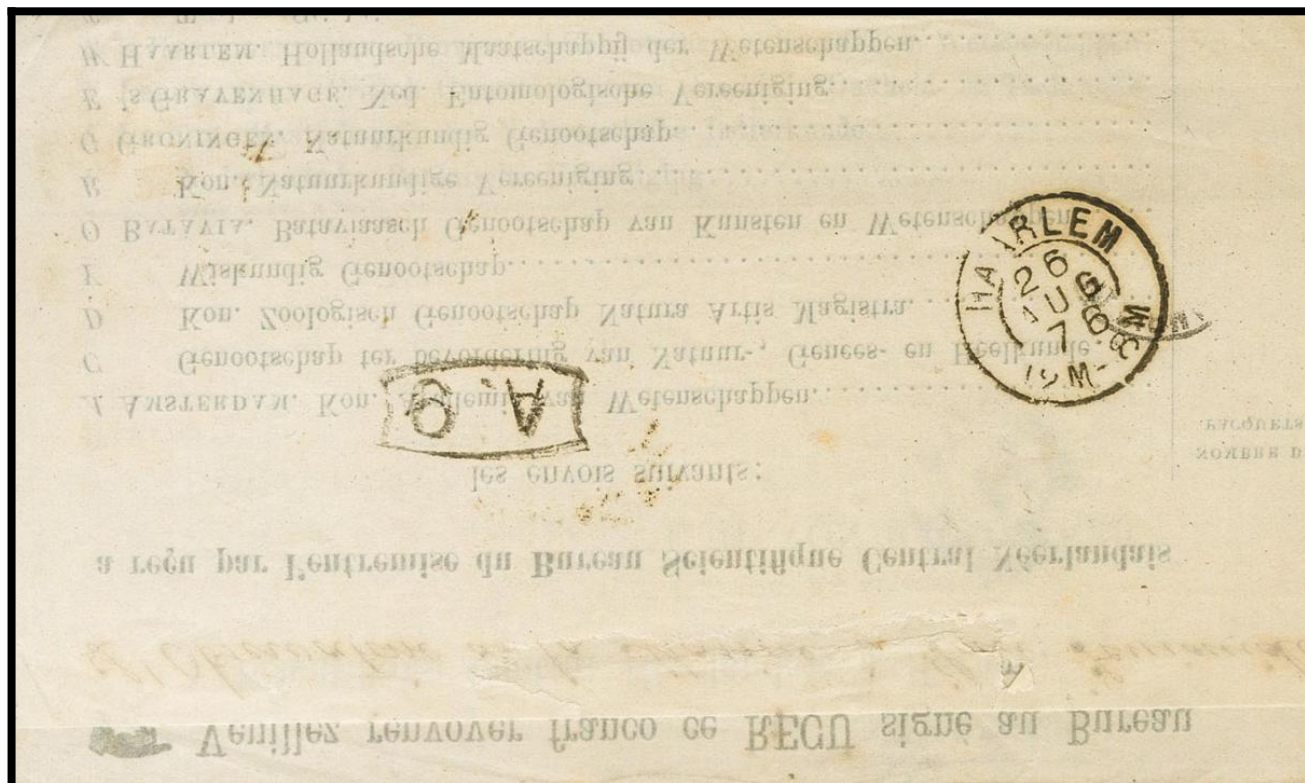 Veuillez renvoyer franco ce REÇU signé au Bureau
a reçu par l'entremise du Bureau Scientifique Central Néerlandais
les envois suivants:
NOMBRE D
PACQUETS
A AMSTERDAM. Kon. Akademie van Wetenschappen
C Genootschap ter bevordering van Natuur-, Genees- en Heelkunde
D Kon. Zoologisch Genootschap Natura Artis Magistra
Wiskundig Genootschap
O BATAVIA. Bataviaasch Genootschap van Kunsten en Wetenschappen
R Kon. Natuurkundige Vereeniging
G GRONINGEN. Natuurkundig Genootschap
E 's GRAVENHAGE. Ned. Entomologische Vereeniging
H HAARLEM. Hollandsche Maatschappij der Wetenschappen
HAARLEM
26
AUG
76